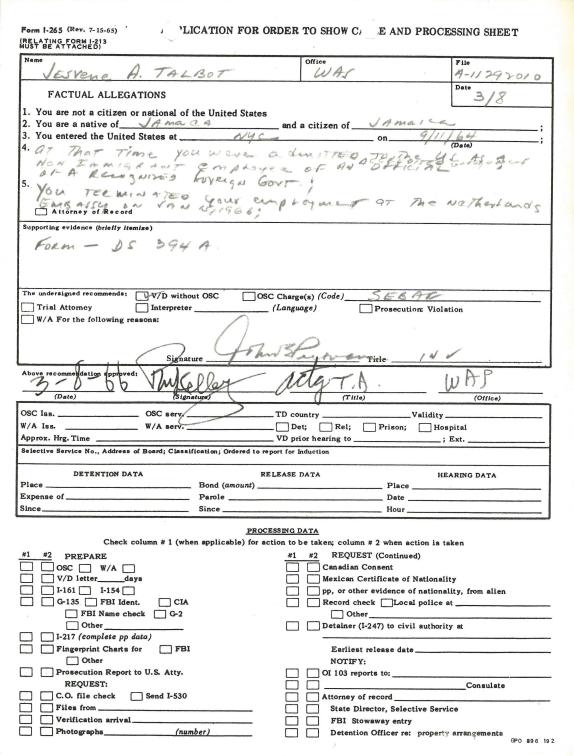 Form I-265 (Rev. 7-15-65)
(RELATING FORM I-213
MUST BE ATTACHED)
PLICATION FOR ORDER TO SHOW C E AND PROCESSING SHEET
Name Office File
A. TALBOT WAS A-11292010
Date
3/8
FACTUAL ALLEGATIONS
1. You are not a citizen or national of the United States
2. You are a native of JAMAICA and a citizen of JAMAICA ;
3. You entered the United States at NYC on 9/11/64 ;
(Date)
4. AT THAT TIME you were admitted TO THE U.S. AS A
NON IMMIGRANT employee OF AN OFFICIAL
OF A Recognized Foreign Govt;
5. YOU TERMINATED your employment AT The Netherlands
EMBASSY ON JAN 1966;
Attorney of Record
Supporting evidence (briefly itemize)
FORM - DS 394 A.
The undersigned recommends: V/D without OSC OSC Charge(s) (Code)
Trial Attorney Interpreter (Language) Prosecution: Violation
W/A For the following reasons:
Signature Title INV
Above recommendation approved:
3-8-66 Kelley actg T.A. WAS
(Date) (Signature) (Title) (Office)
OSC Iss. OSC serv. TD country Validity
W/A Iss. W/A serv. Det; Rel; Prison; Hospital
Approx. Hrg. Time VD prior hearing to ; Ext.
Selective Service No., Address of Board; Classification; Ordered to report for Induction
DETENTION DATA RELEASE DATA HEARING DATA
Place Bond (amount) Place
Expense of Parole Date
Since Since Hour
PROCESSING DATA
Check column # 1 (when applicable) for action to be taken; column # 2 when action is taken
#1 #2 PREPARE
OSC W/A
V/D letter days
I-161 I-154
G-135 FBI Ident. CIA
FBI Name check G-2
Other
I-217 (complete pp data)
Fingerprint Charts for FBI
Other
Prosecution Report to U.S. Atty.
REQUEST:
C.O. file check Send I-530
Files from
Verification arrival
Photographs (number)
#1 #2 REQUEST (Continued)
Canadian Consent
Mexican Certificate of Nationality
pp, or other evidence of nationality, from alien
Record check Local police at
Other
Detainer (I-247) to civil authority at
Earliest release date
NOTIFY:
OI 103 reports to:
Consulate
Attorney of record
State Director, Selective Service
FBI Stowaway entry
Detention Officer re: property arrangements
GPO 896 192